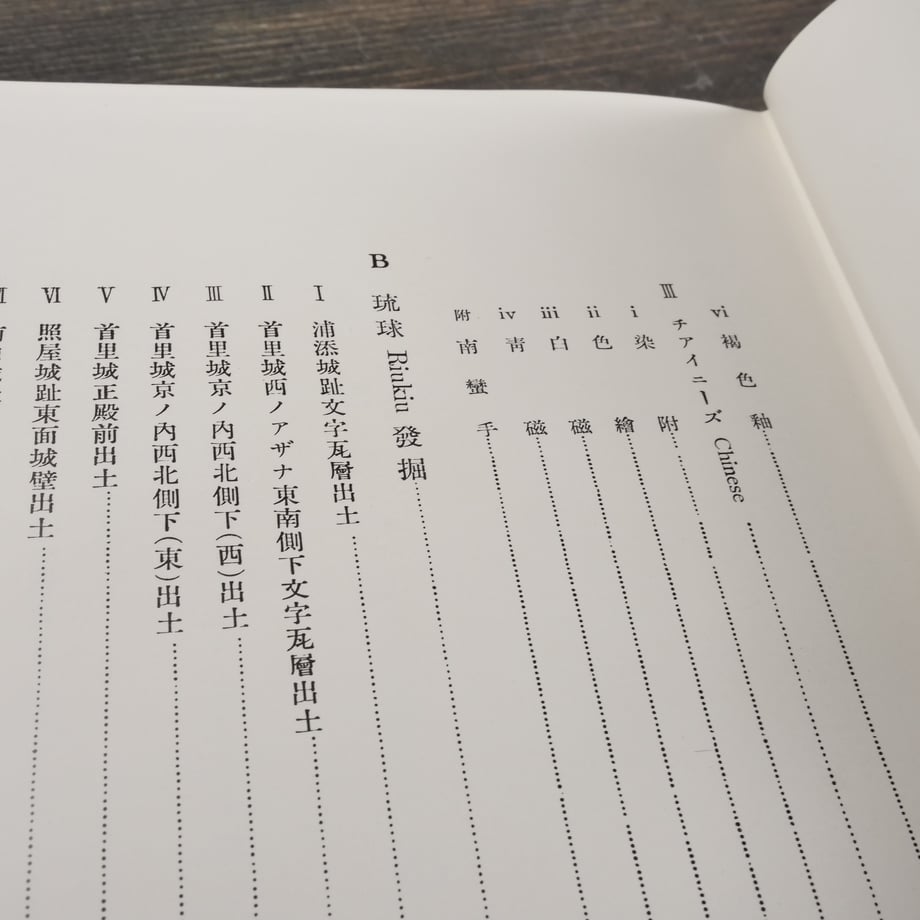 vi 褐色釉
Ⅲ チアイニーズ Chinese
i 染附
ii 色繪
iii 白磁
iv 靑磁
附 南蠻手
B 琉球 Riukiu 發掘
Ⅰ 浦添城趾文字瓦層出土
Ⅱ 首里城西ノアザナ東南側下文字瓦層出土
Ⅲ 首里城京ノ內西北側下(西)出土
Ⅳ 首里城京ノ內西北側下(東)出土
Ⅴ 首里城正殿前出土
Ⅵ 照屋城趾東面城壁出土